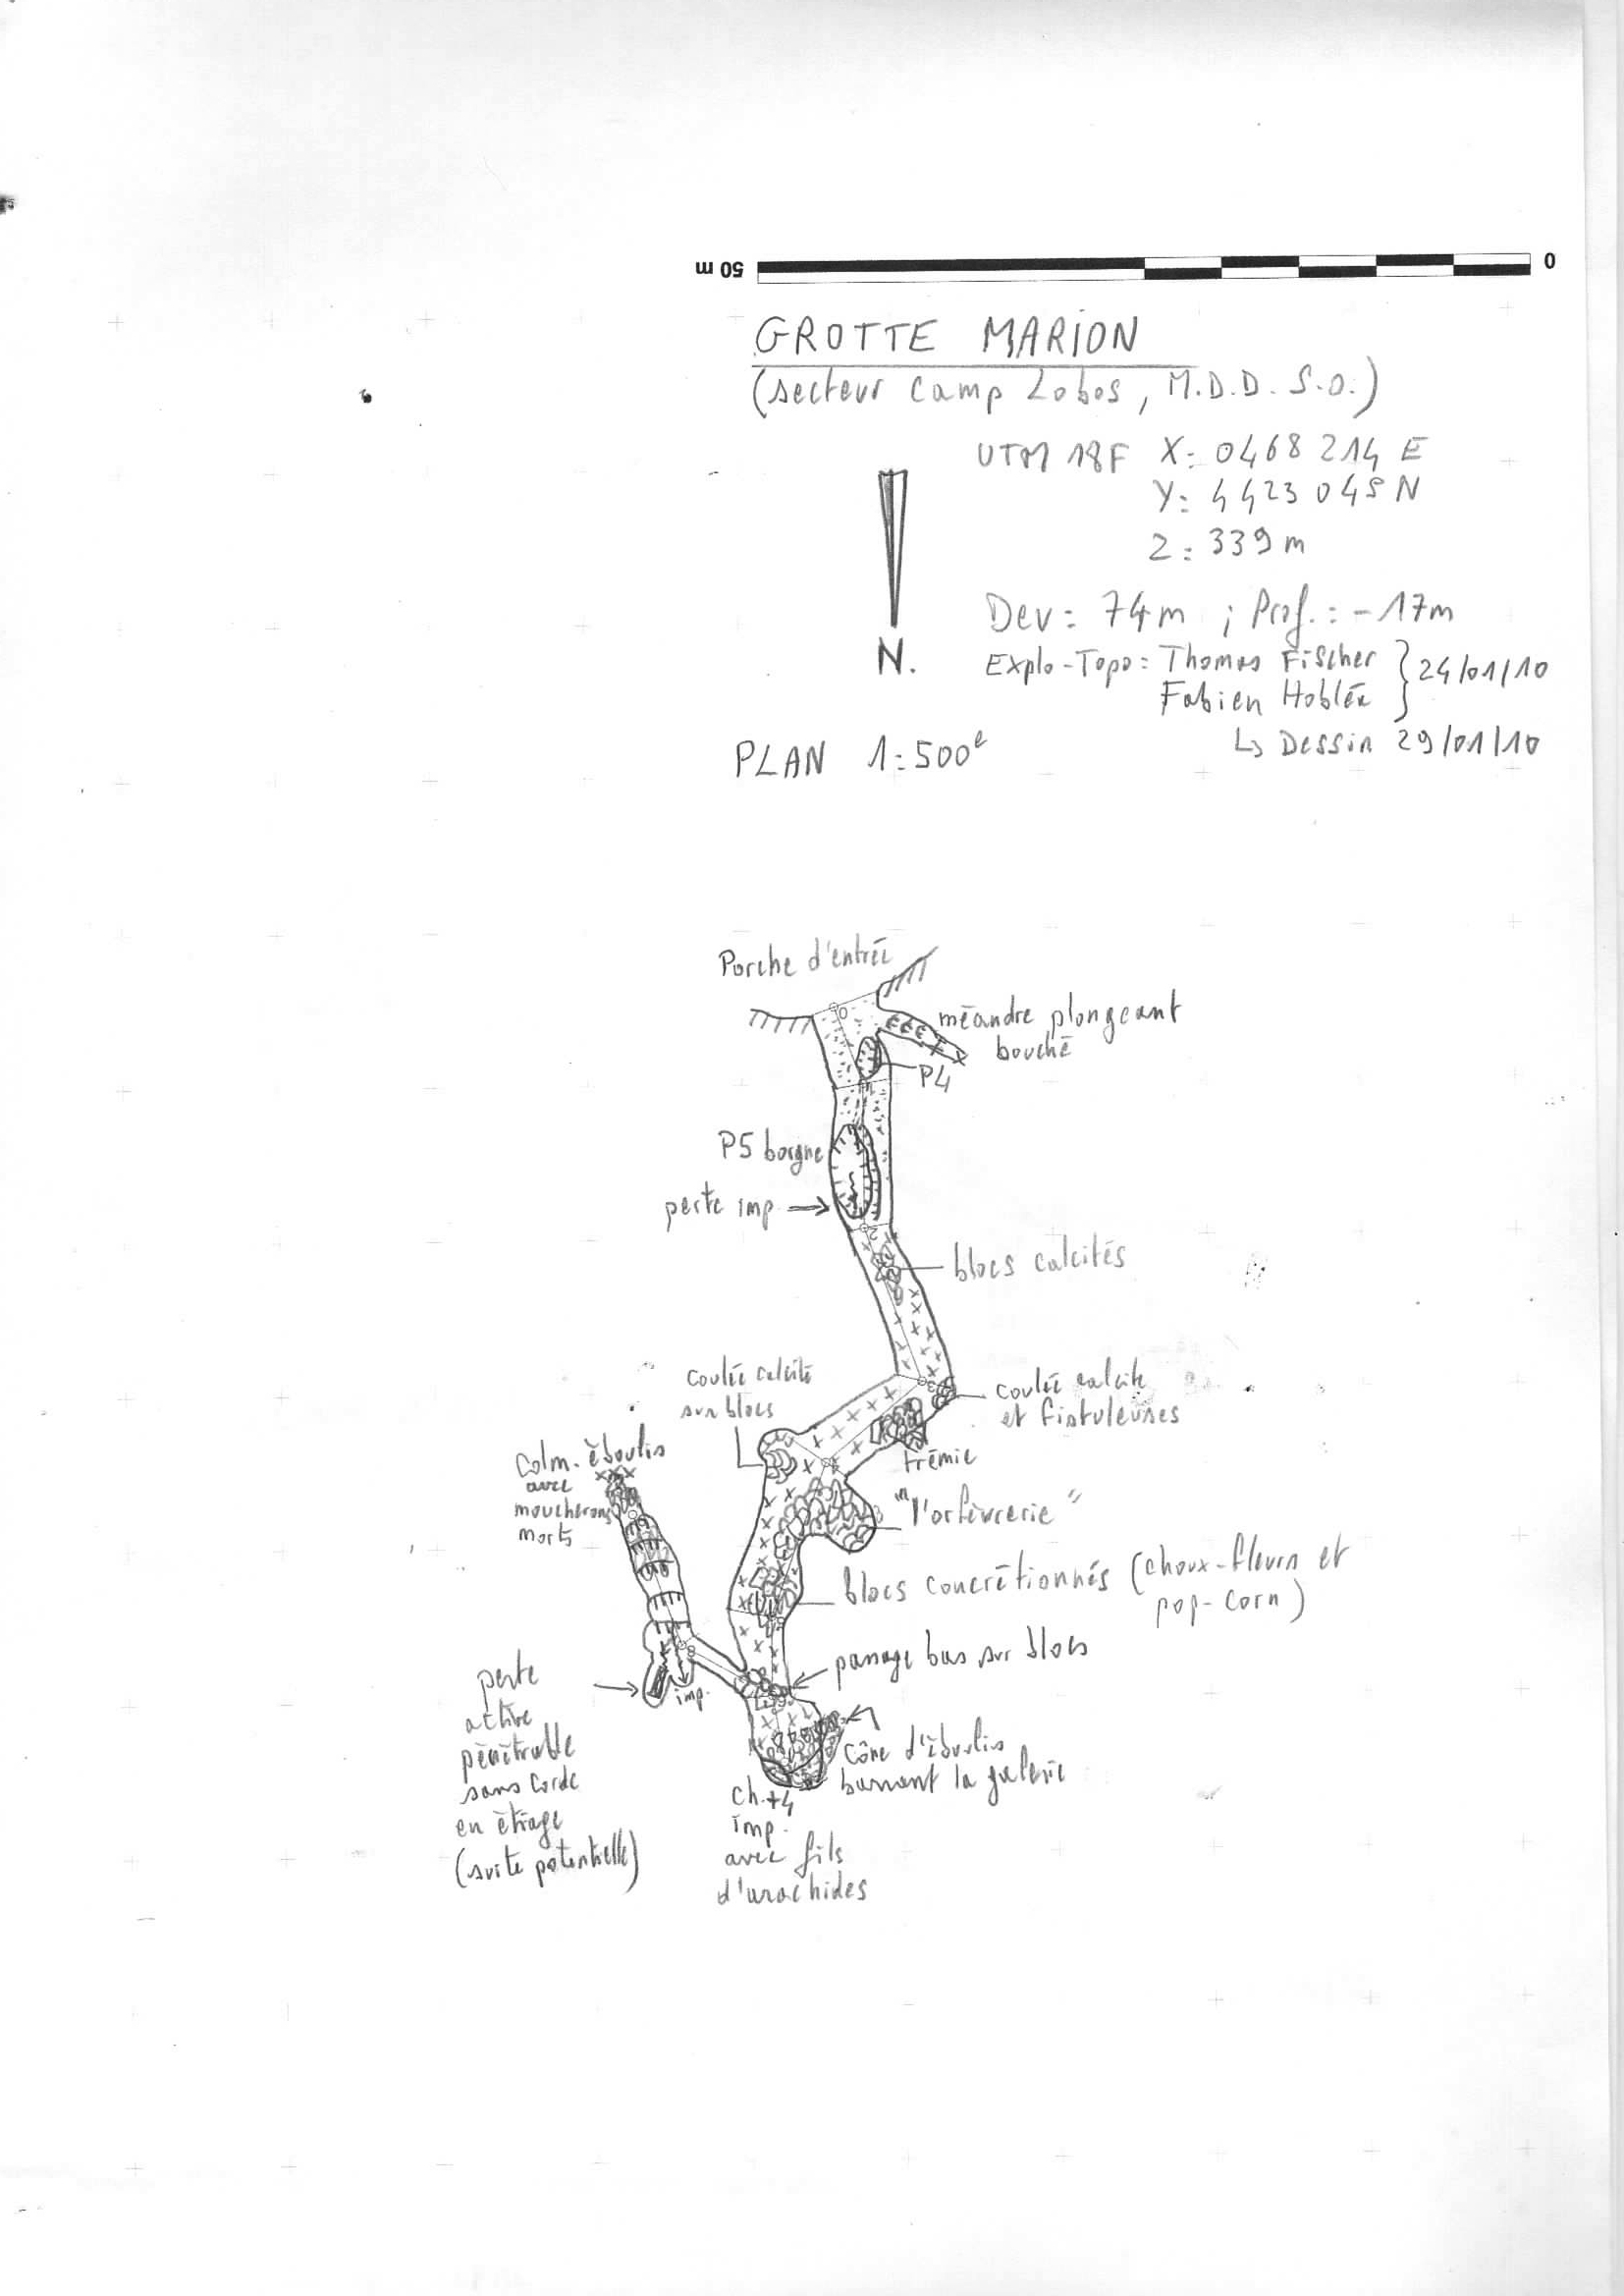 0
50 m
GROTTE MARION
(secteur Camp Lobos, M.D.D. S.O.)
UTM 18F X: 0468 214 E
Y: 4423 045 N
Z: 339 m
N.
Dev: 74m ; Prof.: -17m
Explo-Topo: Thomas Fischer } 24/01/10
Fabien Hobléa
↳ Dessin 29/01/10
PLAN 1:500e
Porche d'entrée
0
méandre plongeant
bouché
P4
P5 borgne
perte imp
2
blocs calcités
3
coulée calcite
sur blocs
coulée calcite
et fistuleuses
trémie
Colm. éboulis
avec
moucherons
morts
"l'orfèvrerie"
blocs concrétionnés (choux-fleurs et
pop-corn)
passage bas sur blocs
8
imp.
perte
active
pénétrable
sans corde
en étiage
(suite potentielle)
cône d'éboulis
barrant la galerie
ch. +4
imp.
avec fils
d'arachides